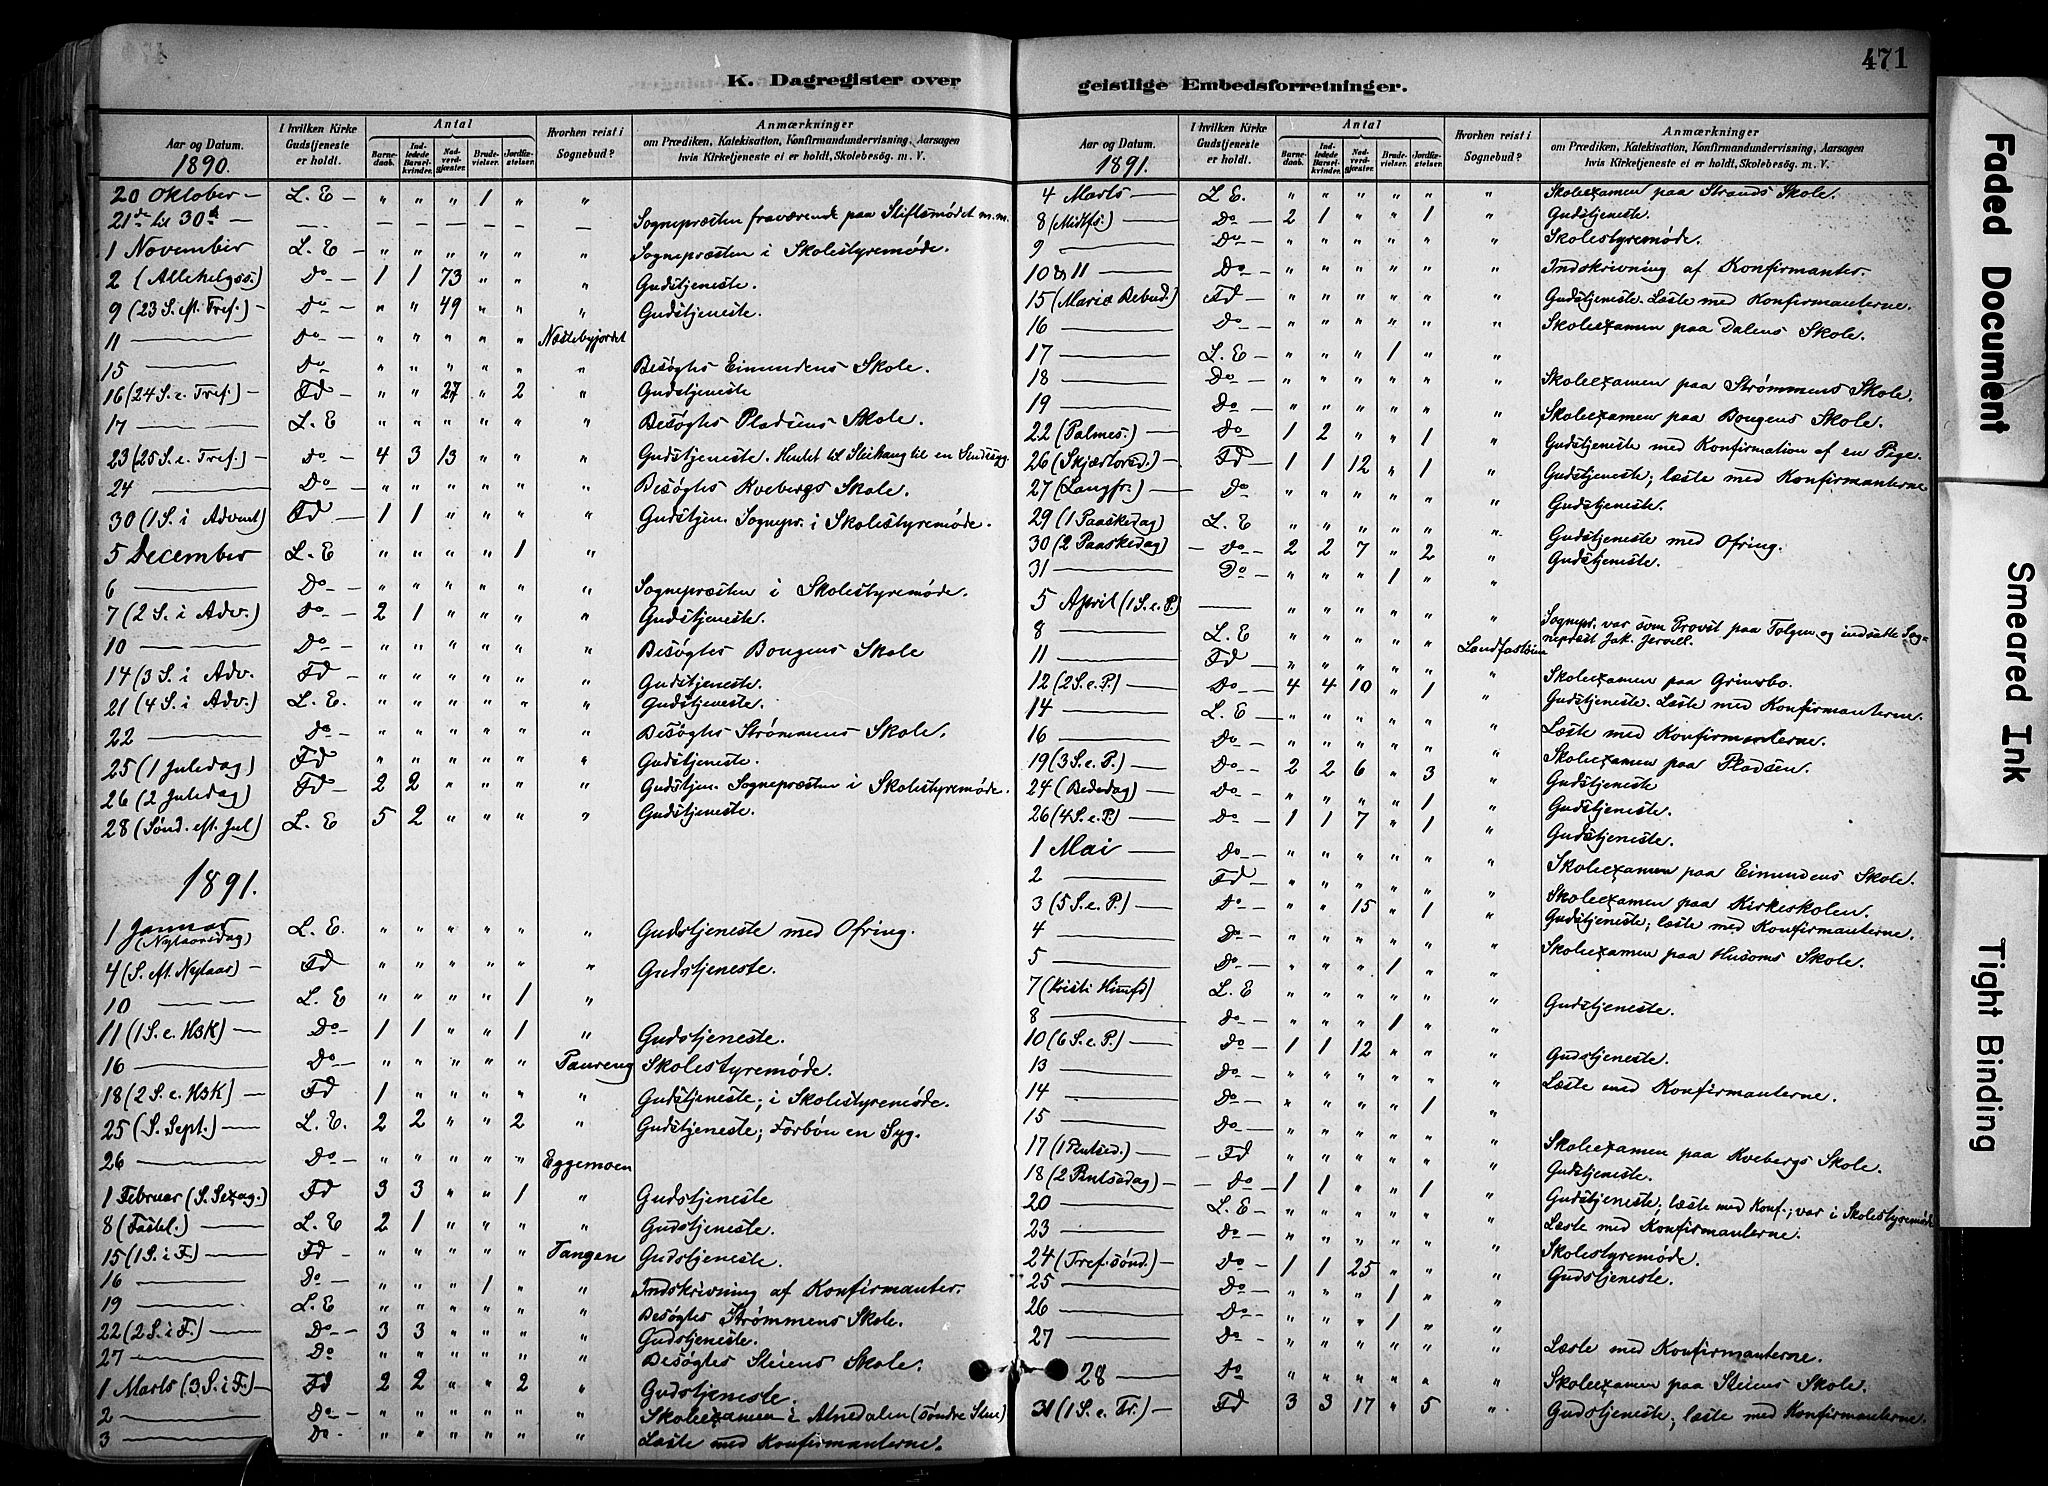 471
K. Dagregister over geistlige Embedsforretninger.
Aar og Datum. 1890. | I hvilken Kirke Gudstjeneste er holdt. | Antal | Barnedaab. | Indledede Barselkvinder. | Nadverdgjæster. | Brudevielser. | Jordfæstelser. | Hvorhen reist i Sognebud? | Anmærkninger om Prædiken, Katekisation, Konfirmandundervisning, Aarsagen hvis Kirketjeneste ei er holdt, Skolebesøg. m. V.
20 Oktober — L. E " " " 1 " "
21de til 30te — — — — — — — Sognepræsten fraværende paa Stiftsmødet m.m.
1 November L. E " " " " " " Sognepræsten i Skolestyremøde.
2 (Allehelgss.) Do 1 1 73 " " " Gudstjeneste.
9 (23 S. eft. Tref.) Do " " 49 " " " Gudstjeneste.
11 — Do " " " " " Næstebyjordet
15 — Do " " " " " " Besøgtes Eimundens Skole.
16 (24 S. e. Tref.) Fd " " 27 " 2 " Gudstjeneste
17 — L. E " " " " " " Besøgtes Pladsens Skole.
23 (25 S. e. Tref.) Do 4 3 13 " " " Gudstjeneste. Hentet til Steihaug til en Sindssyg.
24 — Do " " " " " " Besøgtes Kvebergs Skole.
30 (1 S. i Advent) Fd 1 1 " " " " Gudstjen. Sognepr. i Skolestyremøde.
5 December L. E " " " " 1 "
6 — Do " " " " " " Sognepræsten i Skolestyremøde.
7 (2 S. i Adv.) Do 2 1 " " " " Gudstjeneste.
10 — Do " " " " " " Besøgtes Bougens Skole
14 (3 S. i Adv. Fd " " " " " " Gudstjeneste.
21 (4 S. i Adv.) L. E. " " " " " " Gudstjeneste.
22 — Do " " " " " " Besøgtes Strømmens Skole.
25 (1 Juledag) Fd " " " " " " Gudstjeneste.
26 (2 Juledag) Fd 2 2 " " " " Gudstjen. Sognepræsten i Skolestyremøde.
28 (Sønd. eft. Jul) L. E 5 2 " " " " Gudstjeneste.
1891.
1 Januar (Nytaarsdag) L. E. " " " " " " Gudstjeneste med Ofring.
4 (S. eft. Nytaar — Fd " " " " " " Gudstjeneste.
10 — L. E " " " " 1 "
11 (1 S. e. H3K) — Do 1 1 " " 1 " Gudstjeneste.
16 — Do " " " " " Paureng Skolestyremøde.
18 (2 S. e. H3K) — Fd 1 " " " " " Gudstjeneste; i Skolestyremøde.
25 (S. Sept.) — L. E. 2 2 " " 2 " Gudstjeneste; Forbøn en Syg.
26 — Do " " " " " Eggemoen
1 Februar (S. Sexag.) Fd 3 3 " " 1 " Gudstjeneste
8 (Fastel.) — L. E 2 1 " " " " Gudstjeneste.
15 (1 S. i F.) — Fd " " " " " Tangen Gudstjeneste.
16 — Do " " " 1 " " Indskrivning af Konfirmanter.
19 — L. E " " " " " " Besøgtes Strømmens Skole.
22 (2 S. i F.) — Do 3 3 " " " " Gudstjeneste.
27 — Do " " " " " " Besøgtes Steiens Skole.
1 Marts (3 S. i F.) — Fd 2 2 " " 2 " Gudstjeneste.
2 — Do " " " " " " Skoleexamen i Atnedalen (søndre Stue)
3 — Do " " " " " " Læste med Konfirmanterne.
Aar og Datum. 1891. | I hvilken Kirke Gudstjeneste er holdt. | Antal | Barnedaab. | Indledede Barselkvinder. | Nadverdgjæster. | Brudevielser. | Jordfæstelser. | Hvorhen reist i Sognebud? | Anmærkninger om Prædiken, Katekisation, Konfirmandundervisning, Aarsagen hvis Kirketjeneste ei er holdt, Skolebesøg. m. V.
4 Marts — L. E. " " " " " " Skoleexamen paa Strands Skole.
8 (Midtfs.) — Do 2 1 " " 1 " Gudstjeneste.
9 — Do " " " " " " Skolestyremøde.
10 & 11 — Do " " " " " " Indskrivning af Konfirmanter.
15 (Mariæ Bebud.) Fd " " " " " " Gudstjeneste. Læste med Konfirmanterne.
16 — Do " " " " " " Skoleexamen paa Dalens Skole.
17 — L. E " " " 1 " "
18 — Do " " " " " " Skoleexamen paa Strømmens Skole.
19 — Do " " " " " " Skoleexamen paa Bougens Skole.
22 (Palmes.) — Do 1 2 " " 1 " Gudstjeneste med Konfirmation af en Pige.
26 (Skjærtorsd.) — Fd 1 1 12 " 1 " Gudstjeneste; læste med Konfirmanterne
27 (Langfr.) — Do " " " " " " Gudstjeneste.
29 (1 Paaskedag) L. E " " " " " " Gudstjeneste med Ofring.
30 (2 Paaskedag) Do 2 2 7 " 2 " Gudstjeneste.
31 — Do " " " 1 " "
5 April (1 S. e. P.) — " " " " " " Sognepr. var som Provst paa Tolgen og indsatte Sognepræst Jak. Jervell.
8 — L. E " " " " "
11 — Fd " " " " " Landfastøien Skoleexamen paa Grimsbo.
12 (2 S. e. P.) — Do 4 4 10 " 1 " Gudstjeneste. Læste med Konfirmanterne.
14 — L. E " " " " " " Læste med Konfirmanterne.
16 — Do " " " " " " Skoleexamen paa Pladsen.
19 (3 S. e. P.) — Do 2 2 6 " 3 " Gudstjeneste
24 (Bededag) — Do " " " " 1 " Gudstjeneste.
26 (4 S. e. P.) — Do 1 1 7 " 1 " Gudstjeneste.
1 Mai — Do " " " " " " Skoleexamen paa Eimundens Skole.
2 — Fd " " " " " " Skoleexamen paa Kirkeskolen.
3 (5 S. e. P.) — Do " " 15 " 1 " Gudstjeneste; læste med Konfirmanterne.
4 — Do " " " " " " Skoleexamen paa Husoms Skole.
5 — Do " " " 1 " "
7 (Kristi Himfd) L. E " " " " " " Gudstjeneste.
8 — Do " " " 1 " "
10 (6 S. e. P.) — Do 1 1 12 " " " Gudstjeneste.
13 — Do " " " " " " Læste med Konfirmanterne.
14 — Do " " " " 1 "
15 — Do " " " " " " Skoleexamen paa Kvebergs Skole.
17 (1 Pintsed.) — Fd " " " " " " Gudstjeneste.
18 (2 Pintsedag) — Do 1 1 " " 1 " Gudstjeneste; læste med Konf.; var i Skolestyremøde
20 — L. E " " " " " " Læste med Konfirmanterne.
23 — Do " " " " " " Skolestyremøde.
24 (Tref. sønd.) — Do 1 1 25 " " " Gudstjeneste.
25 — Do " " " 1 " "
26 — Do " " " 1 " "
27 — Do " " " " " " Læste med Konfirmanterne.
28 — Do " " " " " " Skoleexamen paa Steiens Skole.
31 (1 S. e. Tr.) — Fd 3 3 17 " 5 " Gudstjeneste; læste med Konfirmanterne.
Faded Document
Smeared Ink
Tight Binding